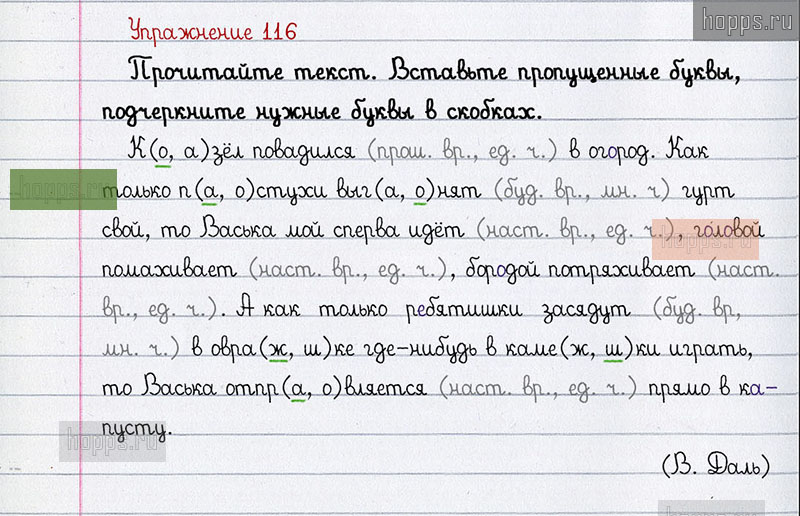 hopps.ru
Упражнение 116
Прочитайте текст. Вставьте пропущенные буквы,
подчеркните нужные буквы в скобках.
К(о, а)зёл повадился (прош. вр., ед. ч.) в огород. Как
только п(а, о)стухи выг(а, о)нят (буд. вр., мн. ч) гурт
свой, то Васька мой сперва идёт (наст. вр., ед. ч.), головой
помахивает (наст. вр., ед. ч.), бородой потряхивает (наст.
вр., ед. ч.). А как только ребятишки засядут (буд. вр,
мн. ч.) в овра(ж, ш)ке где-нибудь в каме(ж, ш)ки играть,
то Васька отпр(а, о)вляется (наст. вр., ед. ч.) прямо в ка-
пусту.
(В. Даль)
hopps.ru
hopps.ru
hopps.ru
hopps.ru